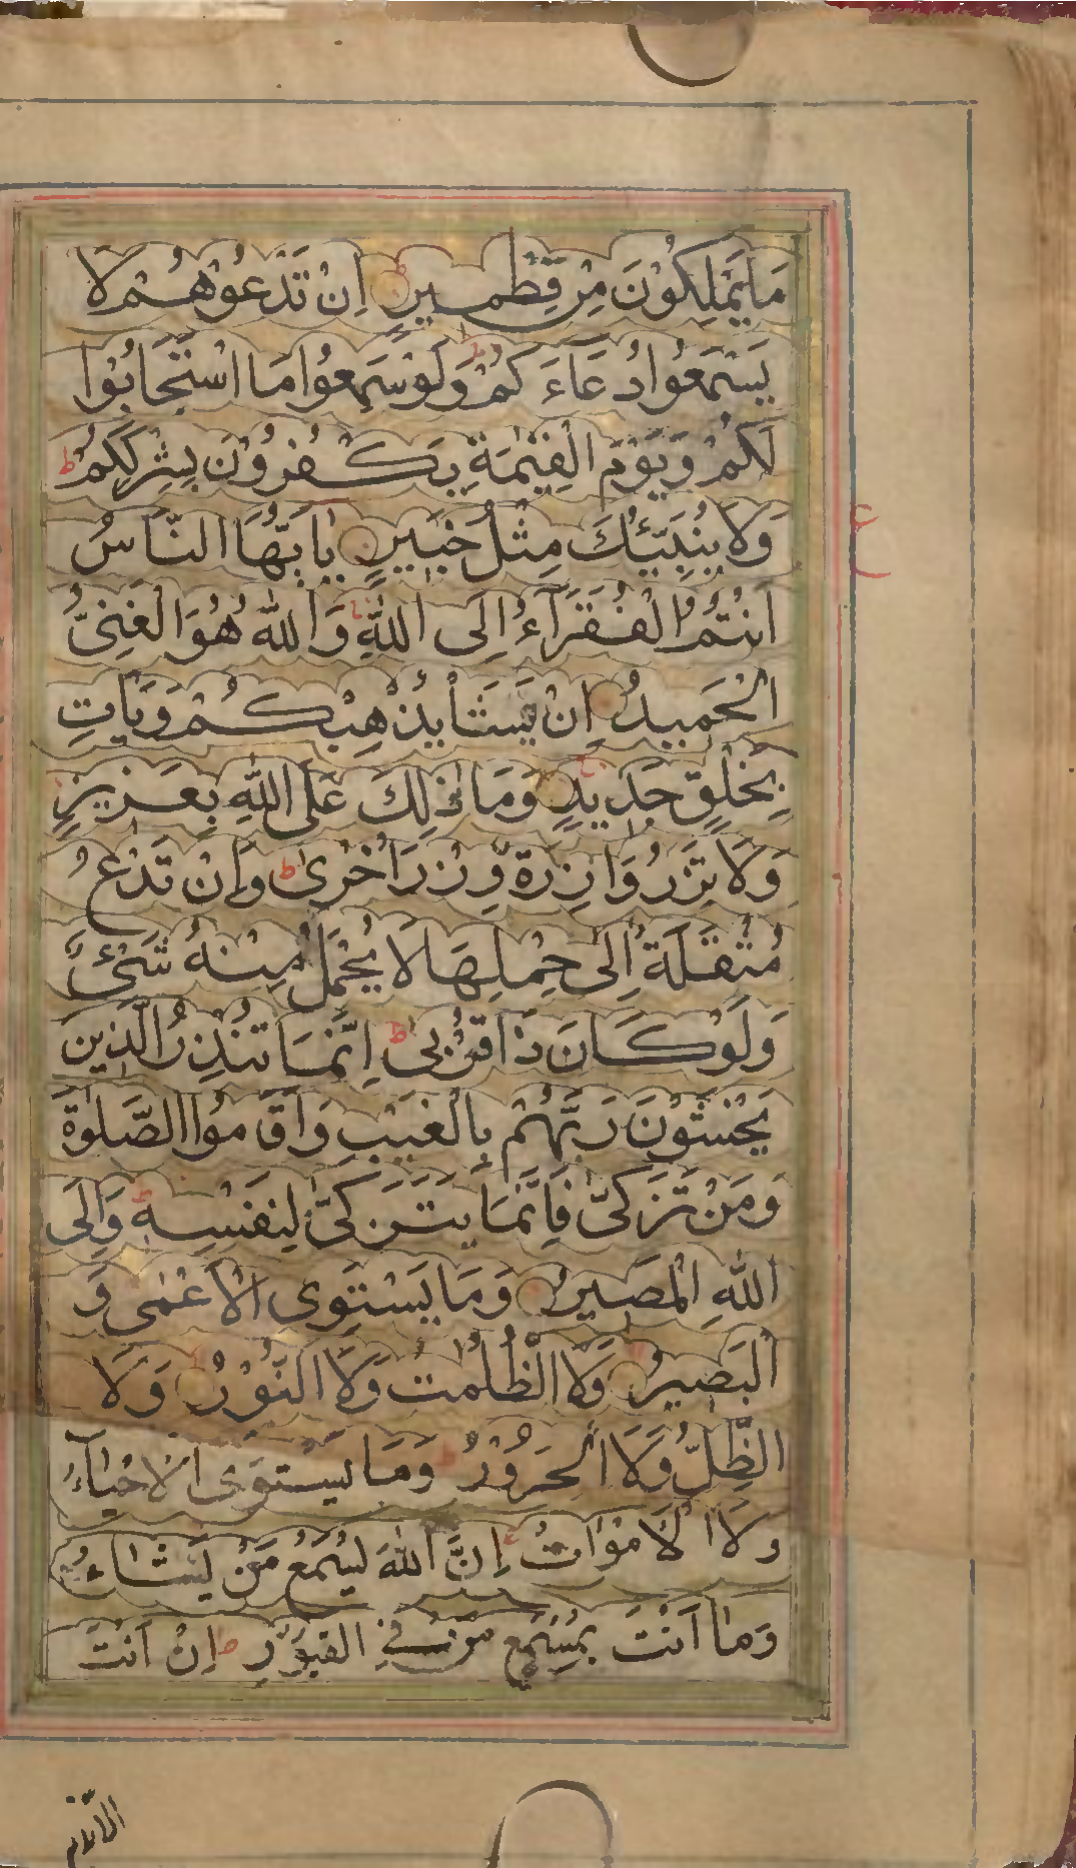 مَا يَمْلِكُوْنَ مِنْ قِطْمِيرٍ اِنْ تَدْعُوْهُمْ لَا
يَسْمَعُوا دُعَآءَ كُمْ ط وَلَوْ سَمِعُوا مَا اسْتَجَابُوْا
لَكُمْ وَيَوْمَ الْقِيٰمَةِ يَكْفُرُوْنَ بِشِرْكِكُمْ ط
وَلَا يُنَبِّئُكَ مِثْلُ خَبِيرٍ يٰاَيُّهَا النَّاسُ
ع
اَنْتُمُ الْفُقَرَآءُ اِلَى اللّٰهِ وَاللّٰهُ هُوَ الْغَنِىُّ
الْحَمِيدُ اِنْ يَّشَأْ يُذْهِبْكُمْ وَيَأْتِ
بِخَلْقٍ جَدِيدٍ وَمَا ذٰلِكَ عَلَى اللّٰهِ بِعَزِيزٍ
وَلَا تَزِرُ وَازِرَةٌ وِّزْرَ اُخْرٰى ط وَاِنْ تَدْعُ
مُثْقَلَةٌ اِلٰى حِمْلِهَا لَا يُحْمَلْ مِنْهُ شَىْءٌ
وَلَوْ كَانَ ذَا قُرْبٰى ط اِنَّمَا تُنْذِرُ الَّذِينَ
يَخْشَوْنَ رَبَّهُمْ بِالْغَيْبِ وَاَقَامُوا الصَّلٰوةَ
وَمَنْ تَزَكّٰى فَاِنَّمَا يَتَزَكّٰى لِنَفْسِهٖ ط وَاِلَى
اللّٰهِ الْمَصِيرُ وَمَا يَسْتَوِى الْاَعْمٰى وَ
الْبَصِيرُ وَلَا الظُّلُمٰتُ وَلَا النُّوْرُ وَلَا
الظِّلُّ وَلَا الْحَرُوْرُ وَمَا يَسْتَوِى الْاَحْيَآءُ
وَلَا الْاَمْوَاتُ اِنَّ اللّٰهَ يُسْمِعُ مَنْ يَّشَآءُ
وَمَا اَنْتَ بِمُسْمِعٍ مَّنْ فِى الْقُبُوْرِ اِنْ اَنْتَ